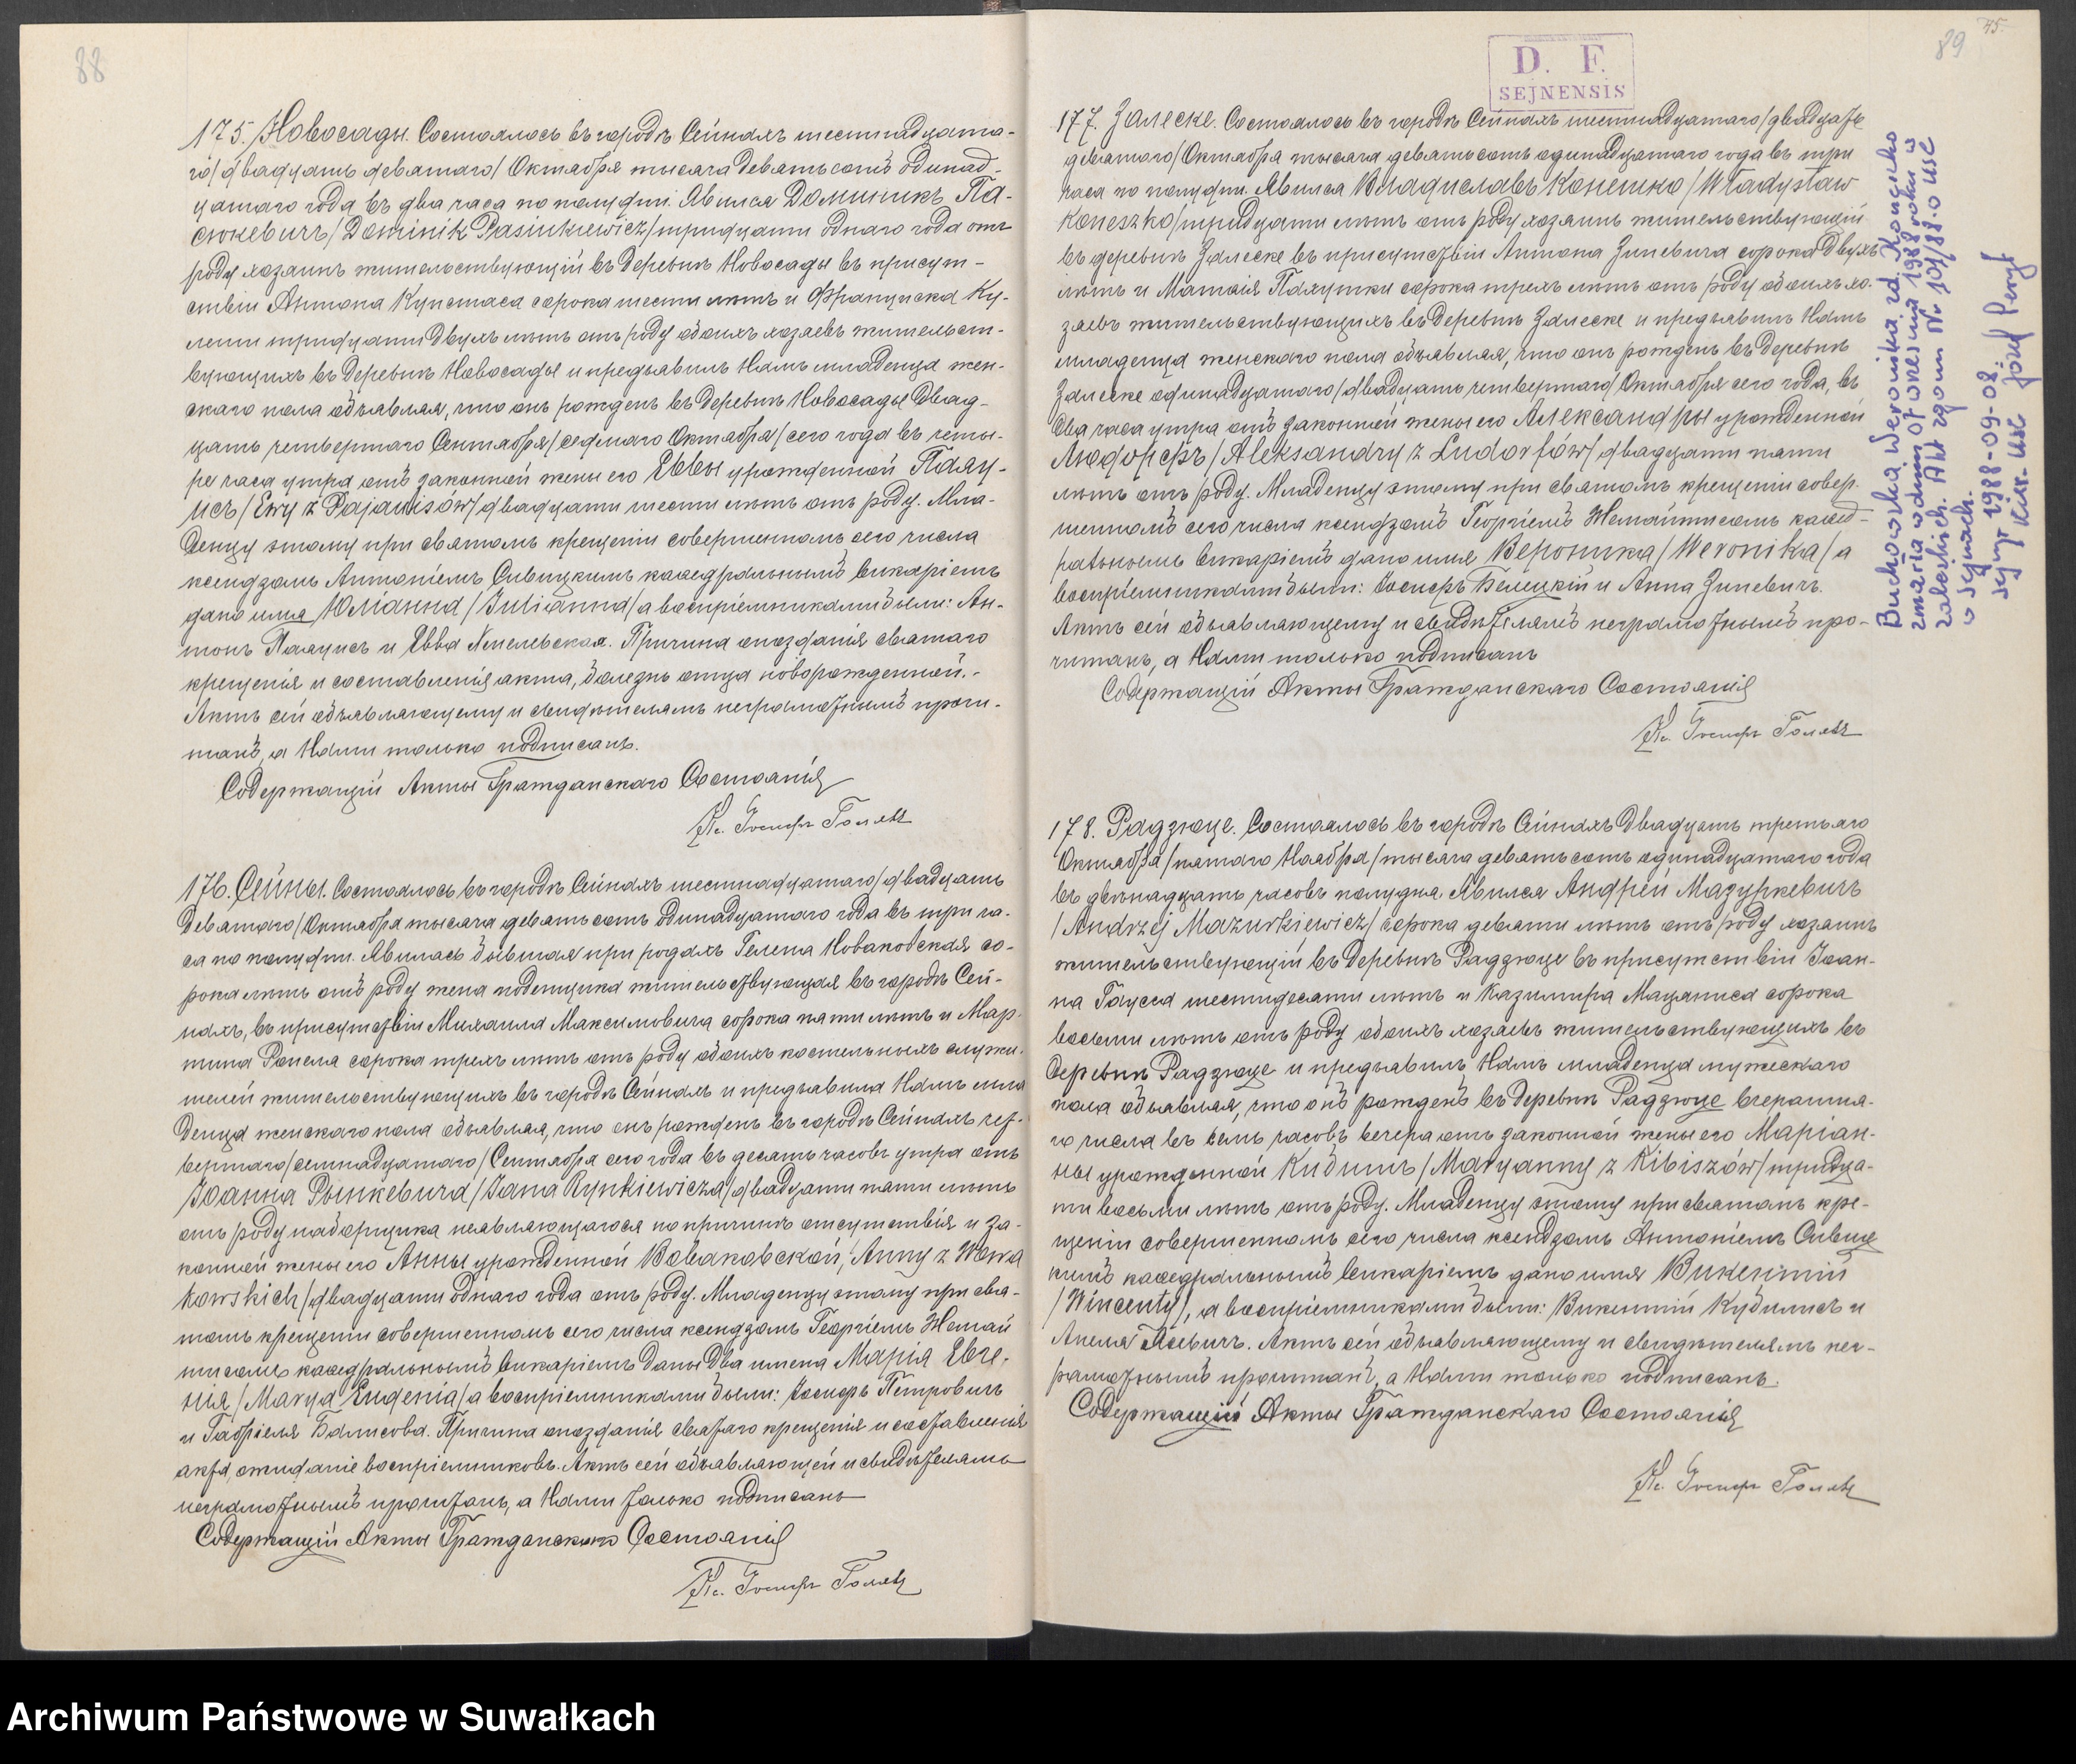 88
175. Новосады. Состоялось въ городѣ Сейнахъ шестнадцата-
го/двадцать девятаго/Октября тысяча девятьсотъ одинад-
цатаго года въ два часа по полудни. Явился Доминикъ Па-
сюкевичъ/Dominik Pasiukiewicz/тридцати одного года отъ
роду хозяинъ жительствующій въ деревнѣ Новосады въ присут-
ствіи Антона Купстаса сорока шести лѣтъ и Францишка Ку-
лети тридцати двухъ лѣтъ отъ роду обоихъ хозяевъ жительст-
вующихъ въ деревнѣ Новосады и предъявилъ Намъ младенца жен-
скаго пола объявляя, что онъ рожденъ въ деревнѣ Новосады двад-
цать четвертаго Сентября/седмаго Октября/сего года въ четы-
ре часа утра отъ законной жены его Еввы урожденной Паяу-
исъ/Ewy z Pajauisów/двадцати шести лѣтъ отъ роду. Мла-
денцу этому при святомъ крещеніи совершенномъ сего числа
ксендзомъ Антоніемъ Сивицкимъ каѳедральнымъ викаріемъ
дано имя Юліанна/Julianna/а воспріемниками были: Ан-
тонъ Паяуисъ и Евва Хмелевская. Причина опозданія святаго
крещенія и составленія акта, болезнь отца новорожденной.-
Актъ сей объявляющему и свидѣтелямъ неграмотнымъ прочи-
танъ, а Нами только подписанъ.
Содержащій Акты Гражданскаго Состоянія
Кс. Іосифъ
176. Сейны. Состоялось въ городѣ Сейнахъ шестнадцатаго/двадцать
девятаго/Октября тысяча девятьсотъ одинадцатаго года въ три ча-
са по полудни. Явилась бывшая при родахъ Гелена Новаковская со-
рока лѣтъ отъ роду жена поденщика жительствующая въ городѣ Сей-
нахъ, въ присутствіи Михаила Максимовича сорока пяти лѣтъ и Мар-
тина сорока трехъ лѣтъ отъ роду обоихъ костельныхъ служи-
телей жительствующихъ въ городѣ Сейнахъ и предъявила Намъ мла
денца женскаго пола объявляя, что онъ рожденъ въ городѣ Сейнахъ чет-
вертаго/семнадцатаго/Сентября сего года въ десять часовъ утра отъ
Іоанна Рынкевича/Jana Rynkiewicza/двадцати пяти лѣтъ
отъ роду наборщика неявляющагося по причинѣ отсутствія и за-
конной жены его Анны урожденной Новаковской/Anny z Nowa
kowskich/двадцати одного года отъ роду. Младенцу этому при свя-
томъ крещеніи совершенномъ сего числа ксендзомъ Георгіемъ Жемай
тисомъ каѳедральнымъ викаріемъ даны два имена Марія Евге-
нія/Marya Eugenia/а воспріемниками были: Іосифъ Петровичъ
и Габріеля Балисова. Причина опозданія святаго крещенія и составленія
акта, ожиданіе воспріемниковъ. Актъ сей объявляющей и свидѣтелямъ
неграмотнымъ прочитанъ, а Нами только подписанъ
Содержащій Акты Гражданскаго Состоянія
Кс. Іосифъ
45.
89
D. F.
SEJNENSIS
177. Залеске. Состоялось въ городѣ Сейнахъ шестнадцатаго/двадцать
девятаго/Октября тысяча девятьсотъ одинадцатаго года въ три
часа по полудни. Явился Владиславъ Конешко/Władysław
Koneszko/тридцати лѣтъ отъ роду хозяинъ жительствующій
въ деревнѣ Залеске въ присутствіи Антона Зиневича сорока двухъ
лѣтъ и Матвія сорока трехъ лѣтъ отъ роду обоихъ хо-
зяевъ жительствующихъ въ деревнѣ Залеске и предъявилъ Намъ
младенца женскаго пола объявляя, что онъ рожденъ въ деревнѣ
Залеске одинадцатаго/двадцать четвертаго/Октября сего года, въ
два часа утра отъ законной жены его Александры урожденной
Людорфъ/Aleksandry z Ludorfów/двадцати пяти
лѣтъ отъ роду. Младенцу этому при святомъ крещеніи совер-
шенномъ сего числа ксендзомъ Георгіемъ Жемайтисомъ каѳед-
ральнымъ викаріемъ дано имя Вероника/Weronika/а
воспріемниками были: Іосифъ Белецкій и Анна Зиневичъ.
Актъ сей объявляющему и свидѣтелямъ неграмотнымъ про-
читанъ, а Нами только подписанъ
Содержащій Акты Гражданскаго Состоянія
Кс. Іосифъ
Buchowska Weronika zd. Koneszko
zmarła w dniu 07 września 1988 roku w
Zaleskich. Akt zgonu Nr 107/88.0 USC
w Sejnach.
Sejny 1988-09-08.
Kier. USC Józef
178. Радзюце. Состоялось въ городѣ Сейнахъ двадцать третьяго
Октября/пятаго Ноября/тысяча девятьсотъ одинадцатаго года
въ двѣнадцать часовъ полудня. Явился Андрей Мазуркевичъ
/Andrzej Mazurkiewicz/сорока девяти лѣтъ отъ роду хозяинъ
жительствующій въ деревнѣ Радзюце въ присутствіи Іоан-
на шестидесяти лѣтъ и Казимира сорока
восьми лѣтъ отъ роду обоихъ хозяевъ жительствующихъ въ
деревнѣ Радзюце и предъявилъ Намъ младенца мужескаго
пола объявляя, что онъ рожденъ въ деревнѣ Радзюце вчерашня-
го числа въ семь часовъ вечера отъ законной жены его Маріан-
ны урожденной Кибишъ/Maryanny z Kibiszów/тридца-
ти восьми лѣтъ отъ роду. Младенцу этому при святомъ кре-
щеніи совершенномъ сего числа ксендзомъ Антоніемъ Сивиц
кимъ каѳедральнымъ викаріемъ дано имя Викентій
/Wincenty/, а воспріемниками были: Викентій и
Анеля. Актъ сей объявляющему и свидѣтелямъ нег-
рамотнымъ прочитанъ, а Нами только подписанъ.
Содержащій Акты Гражданскаго Состоянія
Кс. Іосифъ
Archiwum Państwowe w Suwałkach